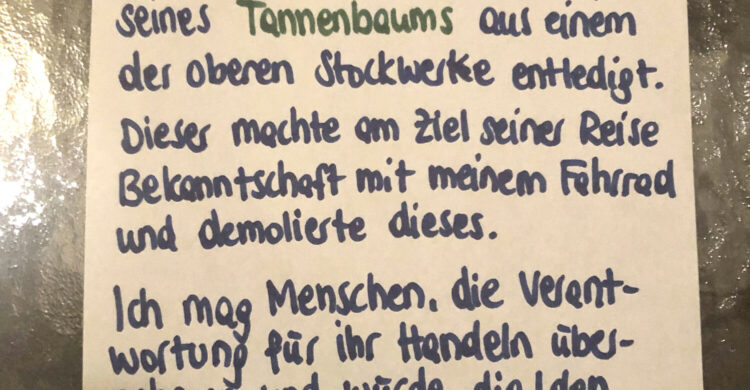 seines Tannenbaums aus einem
der oberen Stockwerke entledigt.
Dieser machte am Ziel seiner Reise
Bekanntschaft mit meinem Fahrrad
und demolierte dieses.
Ich mag Menschen, die Verant-
wortung für ihr Handeln über-
und würde die/den